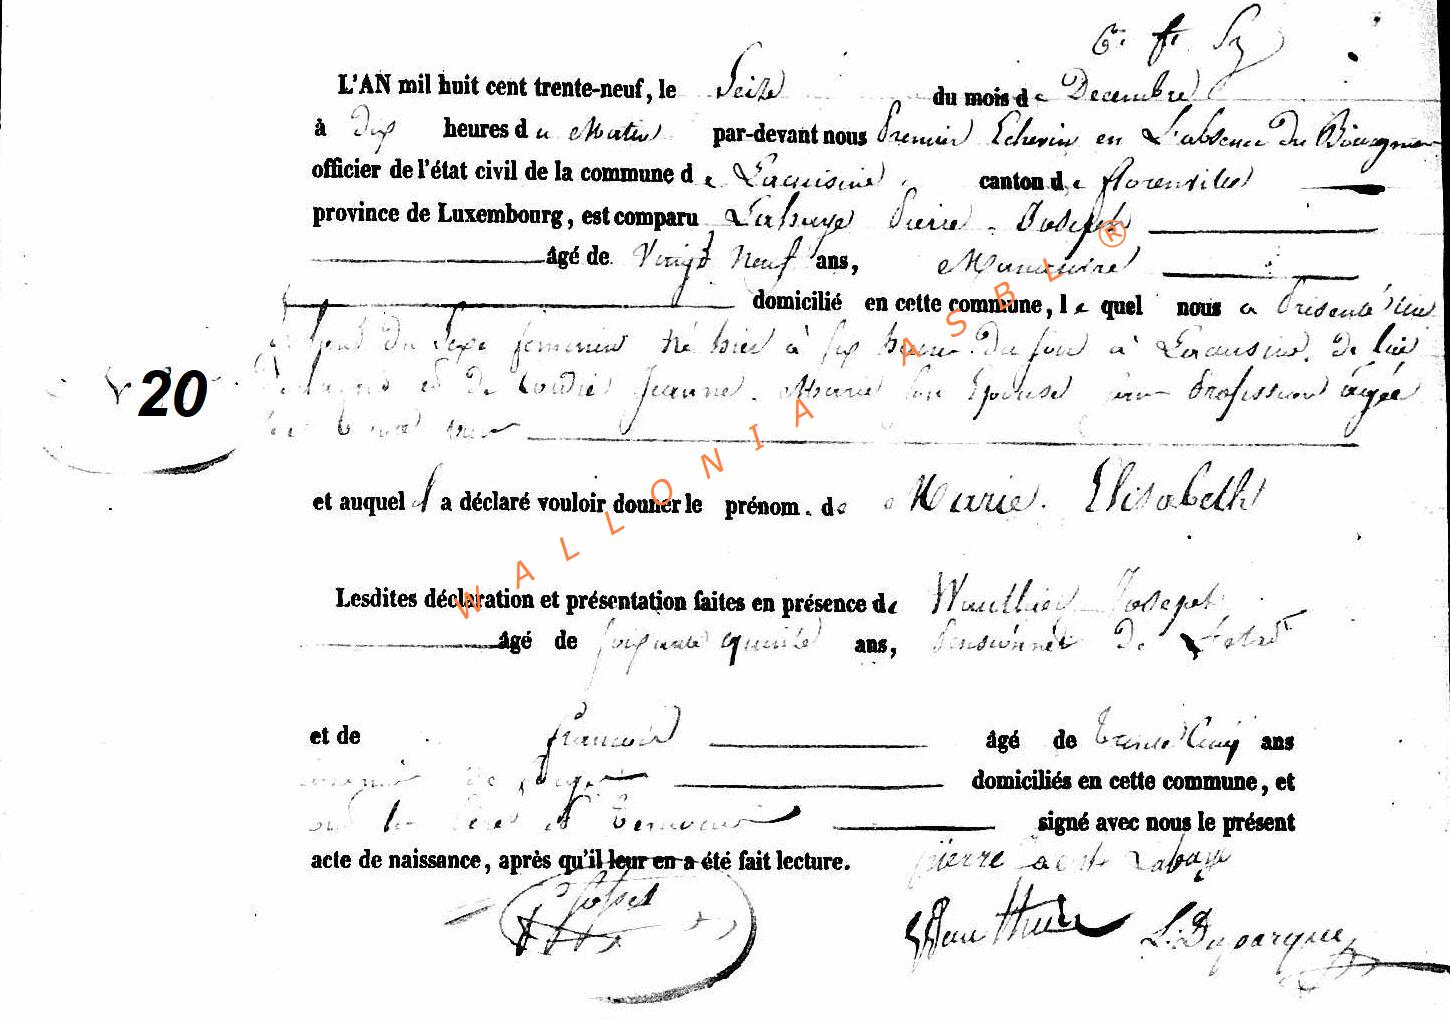 L'AN mil huit cent trente-neuf, le Seize du mois de Decembre
à dix heures du Matin par-devant nous Premier Echevin en L'absence du Bourgmer
officier de l'état civil de la commune de Lacuisine canton de florenville
province de Luxembourg, est comparu Lahaye Pierre Joseph
âgé de Vingt Neuf ans, Manoeuvre
domicilié en cette commune, lequel nous a Présenté un
enfant du Sexe feminin né hier à six heures du soir à Lacuisine, de lui
déclarant et de Jeanne Marie son Epouse sans Profession agée
20
et auquel il a déclaré vouloir donner le prénom de Marie Elisabeth
Lesdites déclaration et présentation faites en présence de Wauthier Joseph
âgé de soixante quinze ans, Pensionné de L'etat
et de françois âgé de trente Cinq ans
domiciliés en cette commune, et
ont les Père et Temoins signé avec nous le présent
acte de naissance, après qu'il leur en a été fait lecture.
Pierre Lahaye
Wauthier L. Duparque
WALLONIA ASBL ®